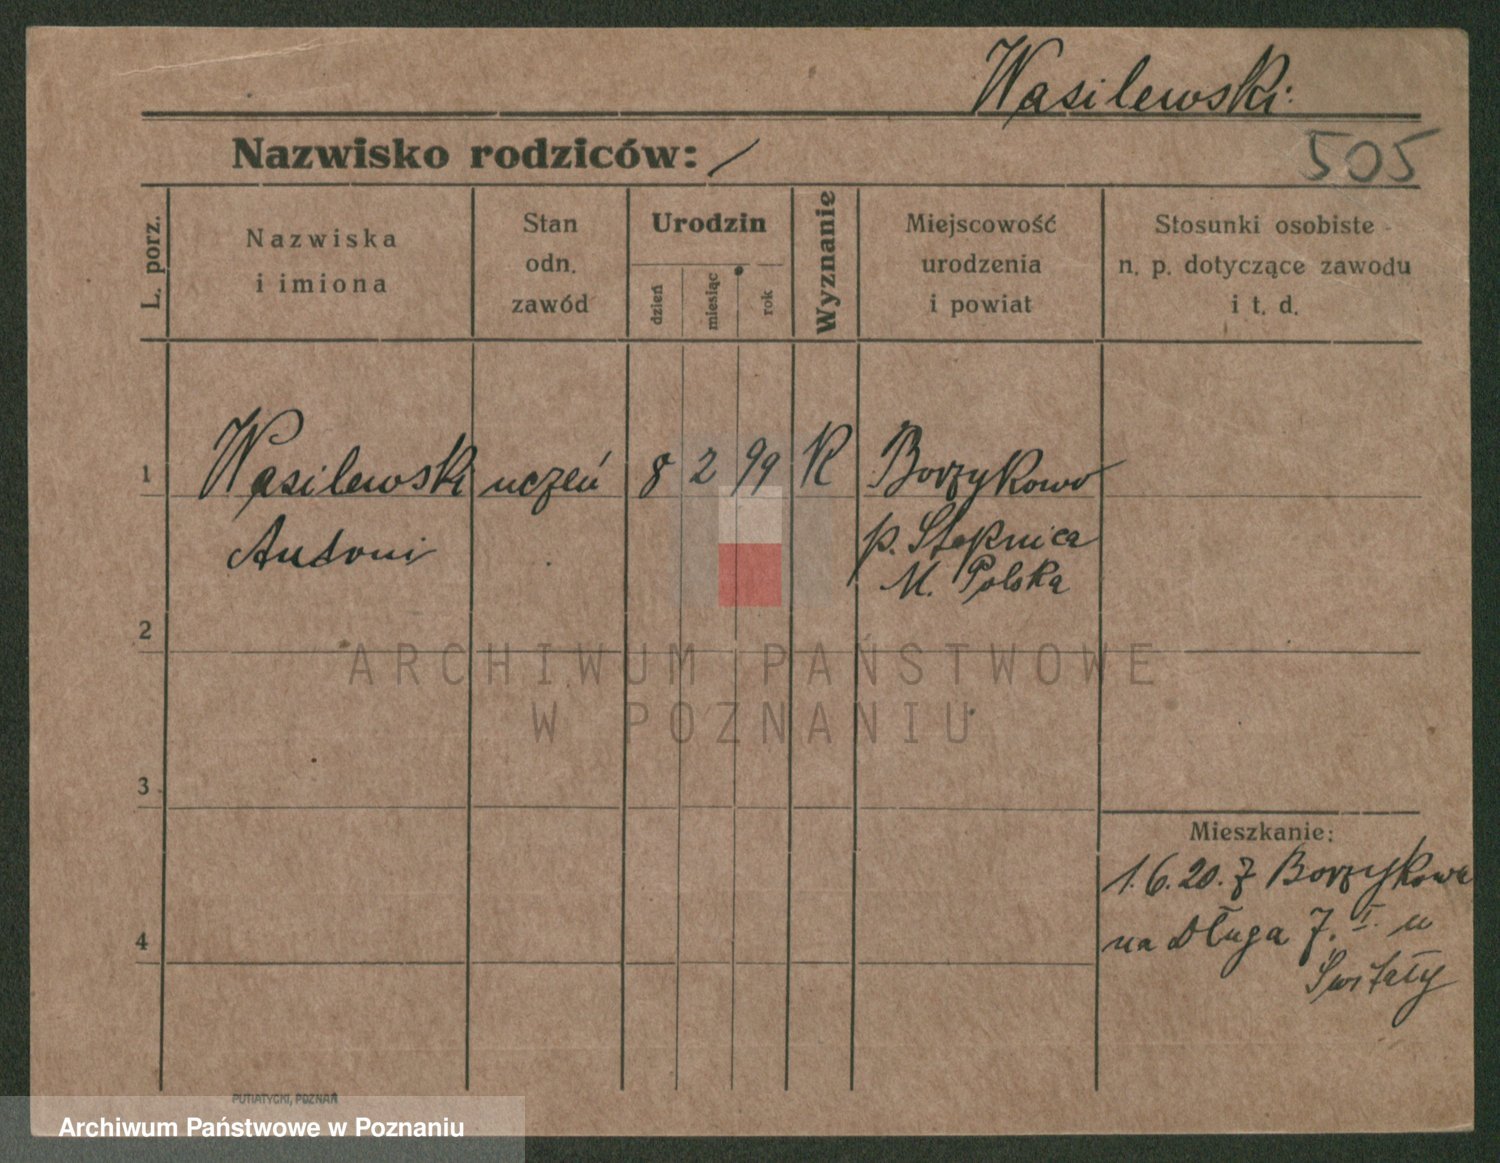 Wasilewski
505
Nazwisko rodziców: /
L. porz.
Nazwiska
i imiona
Stan
odn.
zawód
Urodzin
dzień
miesiąc
rok
Wyznanie
Miejscowość
urodzenia
i powiat
Stosunki osobiste
n. p. dotyczące zawodu
i t. d.
1
Wasilewski uczeń 8 2 99 K Borzykowo
Antoni
p. Stopnica
M. Polska
2
ARCHIWUM PAŃSTWOWE
W POZNANIU
3
Mieszkanie:
1.6.20. z Borzykowa
na Długa 7. I. u
Świtały
4
PUTIATYCKI, POZNAŃ
Archiwum Państwowe w Poznaniu